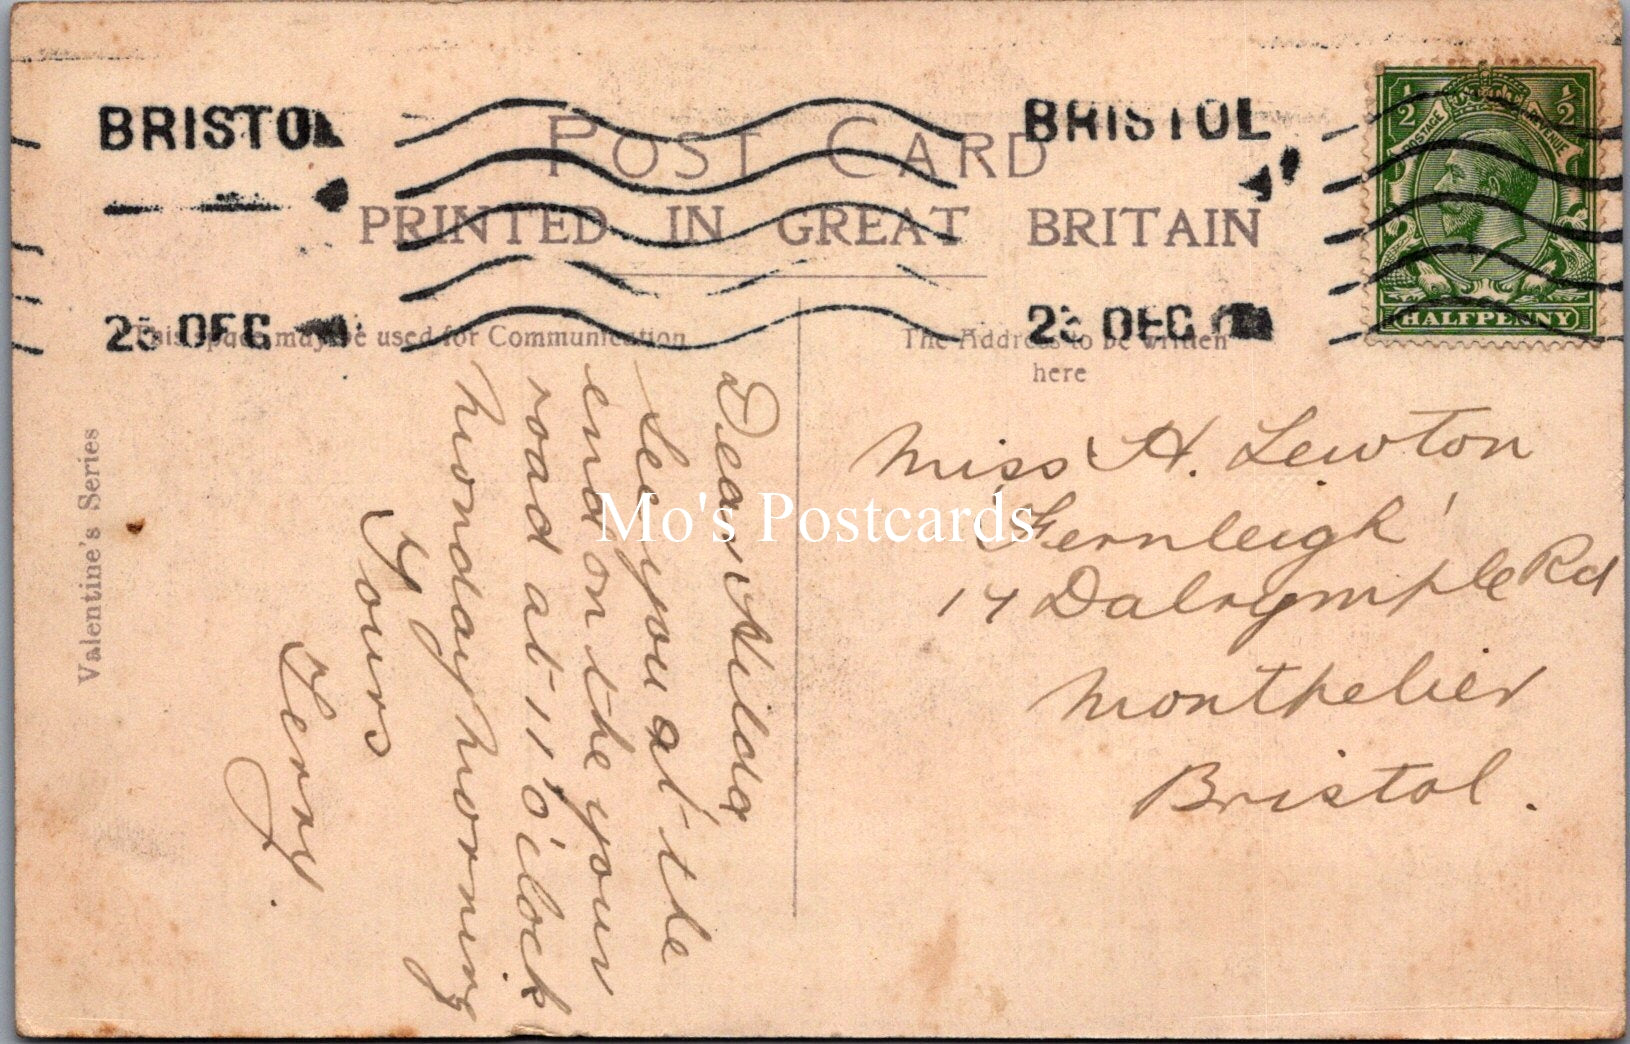 BRISTOL
BRISTOL
POST CARD
PRINTED IN GREAT BRITAIN
DEC
DEC
1/2
1/2
POSTAGE
REVENUE
HALFPENNY
This space may be used for Communication
The Address to be written
here
Valentine's Series
Dear Hilda
See you at the
end on the your
road at 11 o'clock
Monday morning
Yours
Miss H. Lewton
'Fernleigh'
Dalrymple Rd
Montpelier
Bristol.
Mo's Postcards